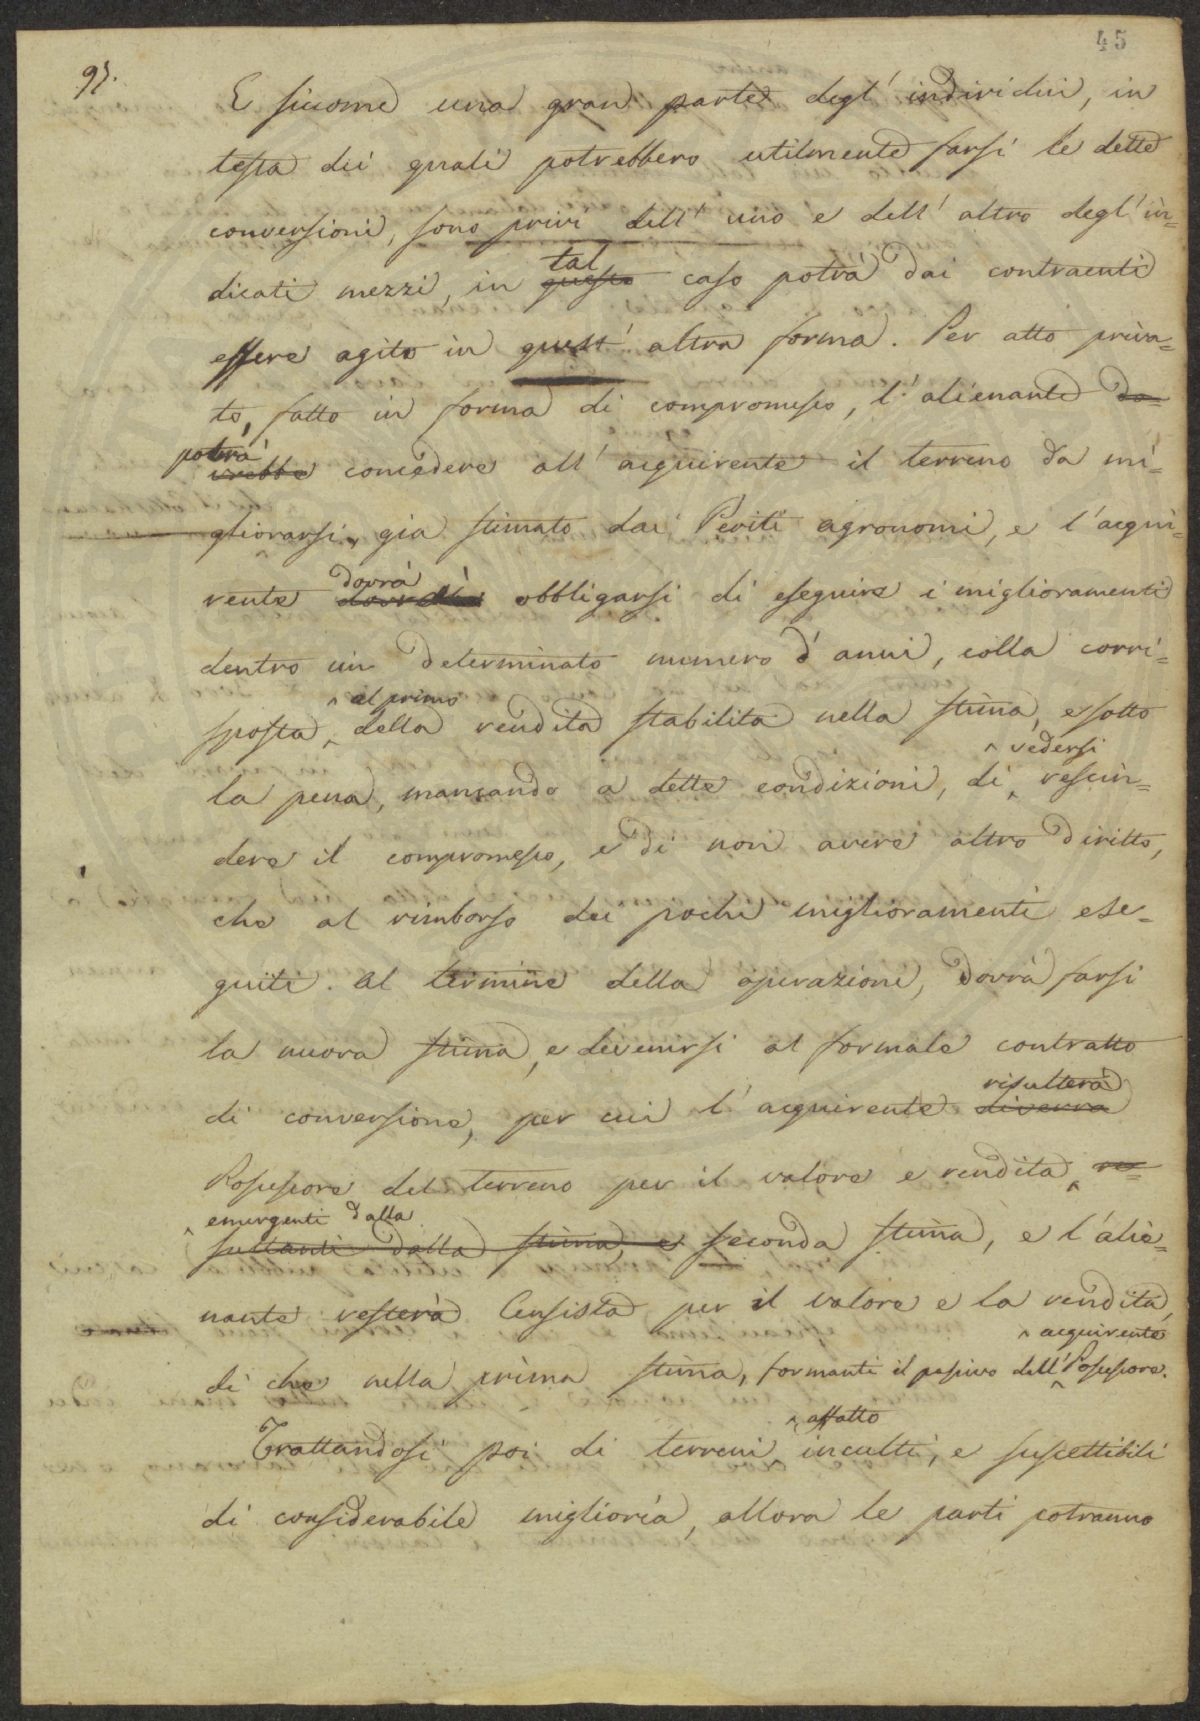 45
97.
E siccome una gran parte degl' individui, in
testa dei quali potrebbero utilmente farsi le dette
conversioni, sono privi dell' uno e dell' altro degl' in=
dicati mezzi, in questo tal caso potrà dai contraenti
essere agito in quest' altra forma. Per atto priva=
to, fatto in forma di compromesso, l' alienante do=
vrebbe potrà concedere all' acquirente il terreno da mi=
gliorarsi, già stimato dai Periti agronomi, e l' acqui=
rente dovrà obbligarsi di eseguire i miglioramenti
dentro un determinato numero d' anni, colla corri=
sposta al primo della rendita stabilita nella stima, e sotto
la pena, mancando a dette condizioni, di vedersi rescin=
dere il compromesso, e di non avere altro diritto,
che al rimborso dei pochi miglioramenti ese=
guiti. Al termine della operazione, dovrà farsi
la nuova stima, e devenirsi al formale contratto
di conversione, per cui l' acquirente diverrà risulterà
Possessore del terreno per il valore e rendita, re=
sultanti dalla stima, e emergenti dalla seconda stima, e l' alie=
nante resterà Censista per il valore e la rendita,
di che nella prima stima, formanti il passivo dell' acquirente Possessore.
Trattandosi poi di terreni affatto inculti, e suscettibili
di considerabile miglioría, allora le parti potranno